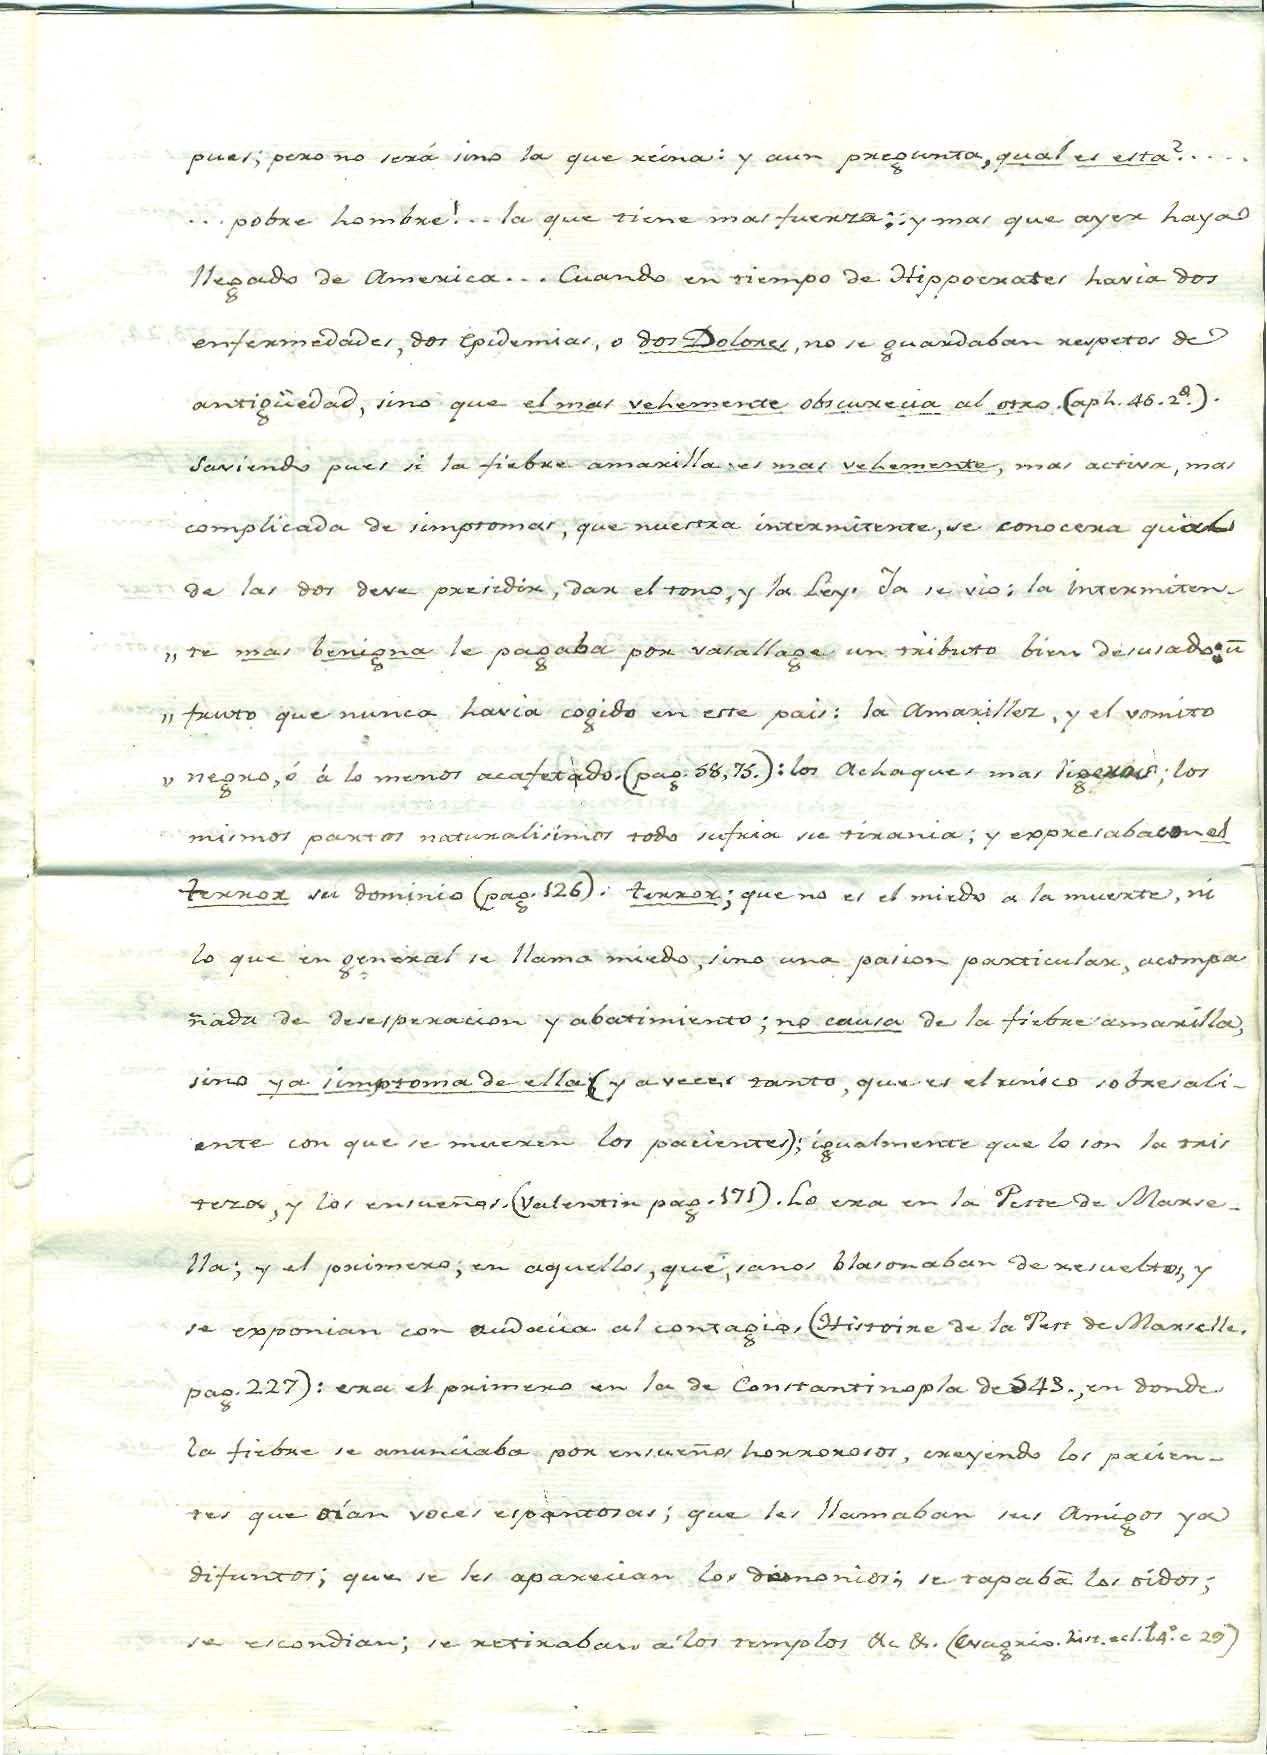 pues; pero no será sino la que reina: y aun pregunta, qual es esta?.....
...pobre hombre!.. la que tiene mas fuerza;: y mas que ayer haya
llegado de America... Cuando en tiempo de Hippocrates havia dos
enfermedades, dos Epidemias, o dos Dolores, no se guardaban respetos de
antigüedad, sino que el mas vehemente obscurecia al otro. (aph. 46. 2ª.).
Saviendo pues si la fiebre amarilla es mas vehemente, mas activa, mas
complicada de simptomas, que nuestra intermitente, se conocera qual
de las dos deve presidir, dar el tono, y la Ley. Ya se vio: la intermiten-
„ te mas benigna le pagaba por vasallage un tributo bien desusado: ū
„ fruto que nunca havia cogido en este pais: la Amarillez, y el vomito
„ negro, ó á lo menos acafetado. (pag. 58, 75.): los Achaques mas ligeros; los
mismos partos naturalisimos todo sufria su tirania; y expresaba con el
terror su dominio (pag. 126). terror; que no es el miedo a la muerte, ni
lo que en general se llama miedo, sino una pasion particular, acompa
ñada de desesperacion y abatimiento; no causa de la fiebre amarilla,
sino ya simptoma de ella (y a veces tanto, que es el unico sobresali-
ente con que se mueren los pacientes); igualmente que lo son la tris
teza, y los ensueños. (Valentin pag. 171). Lo era en la Peste de Marse-
lla; y el primero; en aquellos, que, sanos blasonaban de resueltos, y
se exponian con audacia al contagio. (Histoire de la Pest de Marselle.
pag. 227): era el primero en la de Constantinopla de 543., en donde
la fiebre se anunciaba por ensueños horrorosos, creyendo los pacien-
tes que oían voces espantosas; que les llamaban sus Amigos ya
difuntos; que se les aparecian los demonios; se tapabā los oidos;
se escondian; se retiraban a los templos &c &. (Evagrio. hist. ecl. l. 4.º c 29)